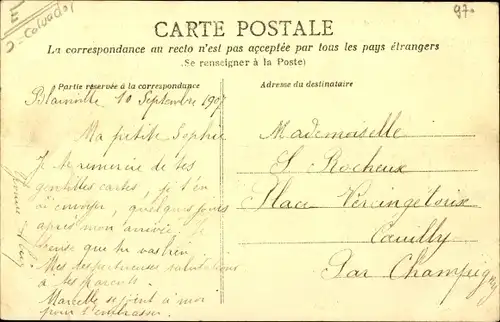 D-Calvados
970
CARTE POSTALE
La correspondance au recto n'est pas acceptée par tous les pays étrangers
(Se renseigner à la Poste)
Partie réservée à la correspondance
Adresse du destinataire
Blainville 10 Septembre 1907
Ma petite Sophie
Je te remercie de tes
gentilles cartes, je t'en
ai envoyer, quelques jours
après mon arrivée. Je
pense que tu vas bien
Mes respectueuses salutations
à tes parents.
Marcelle se joint à moi
pour t'embrasser
Mademoiselle
S. Rocheux
Place Vercingétorix
Couilly
Par Champigny